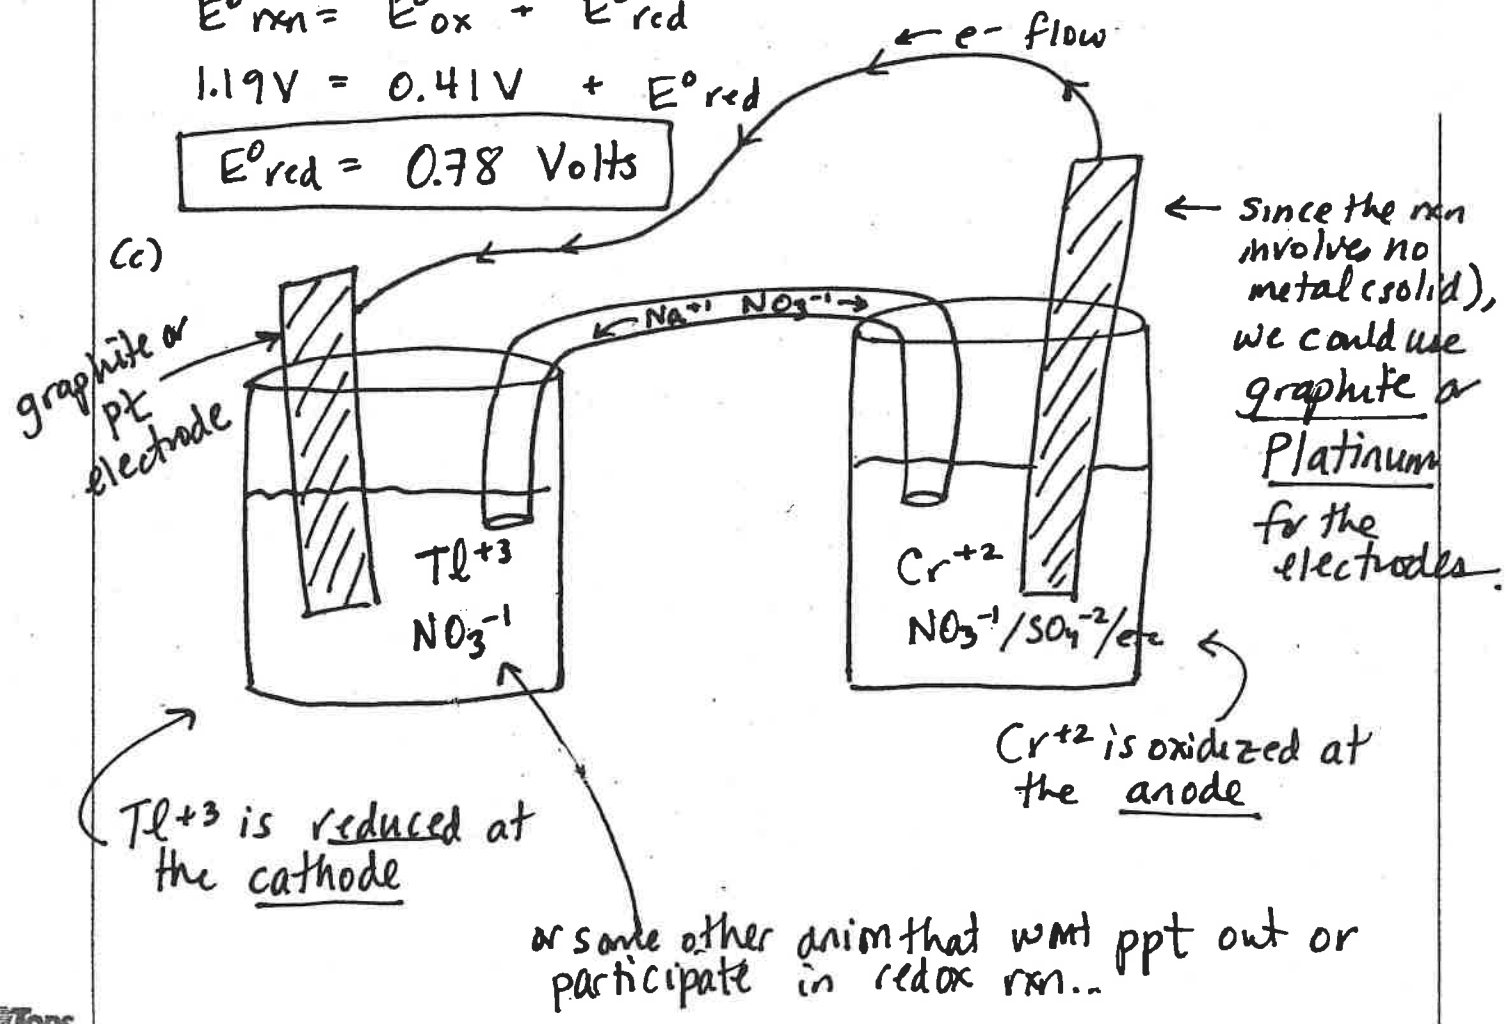 E° rxn = E° ox + E° red
1.19V = 0.41V + E° red
E° red = 0.78 Volts
← e- flow
(c)
graphite or
pt
electrode
← Na+1 NO3-1 →
← since the rxn
involves no
metal (solid),
we could use
graphite or
Platinum
for the
electrodes.
Tl+3
NO3-1
Cr+2
NO3-1/SO4-2/etc
Cr+2 is oxidized at
the anode
Tl+3 is reduced at
the cathode
or some other anion that wont ppt out or
participate in redox rxn...
Tops